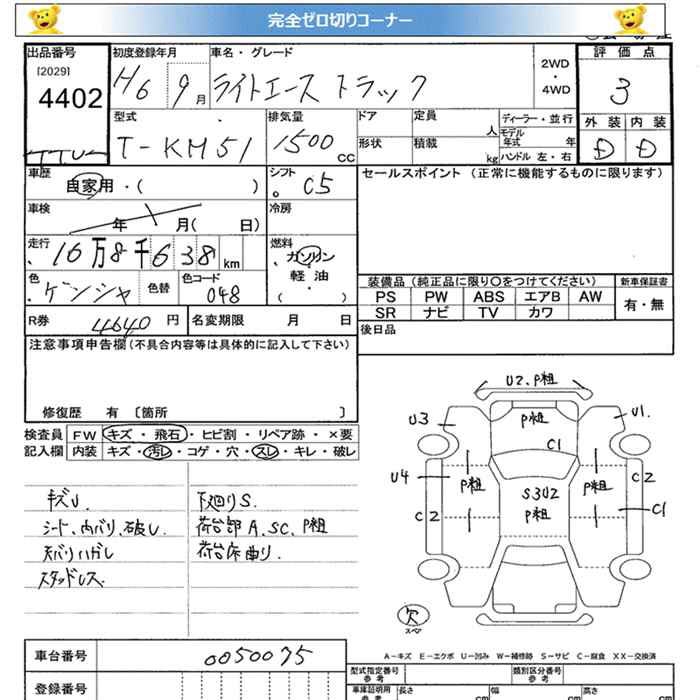 完全ゼロ切りコーナー
出品番号
[2029]
4402
初度登録年月
H6 9月
車名・グレード
ライトエース トラック
2WD
・
4WD
評価点
3
外装 内装
D D
型式
T-KM51
排気量
1500 CC
ドア
形状
定員 人
積載 kg
ディーラー・並行
モデル年式 年
ハンドル 左・右
車歴
自家用・( )
シフト
C5
セールスポイント (正常に機能するものに限ります)
車検
年 月( 日)
冷房
走行
16万8千638 km
燃料
ガソリン
軽・油
( ・ )
色
ゲンシャ
色替
色コード
048
装備品 (純正品に限り○をつけてください)
新車保証書
PS PW ABS エアB AW
SR ナビ TV カワ
有・無
R券 4640円
名変期限 月 日
後日品
注意事項申告欄(不具合内容等は具体的に記入して下さい)
修復歴 有 〔箇所 〕
検査員 FW キズ・飛石・ヒビ割・リペア跡・×要
記入欄 内装 キズ・汚レ・コゲ・穴・スレ・キレ・破レ
キズU.
シート、内バリ、破レ.
天バリハガレ
スタッドレス.
下廻りS.
荷台部A、SC、P粗
荷台床曲り.
U2、P粗
U3
P粗
U1
C1
U4
P粗
S3U2
P粗
P粗
C2
C2
C1
欠
スペア
A－キズ E－エクボ U－凹み W－補修跡 S－サビ C－腐食 XX－交換済
車台番号 0050075
型式指定番号
参考
類別区分番号
参考
登録番号
車庫証明用
参考
長さ cm
幅 cm
高さ cm